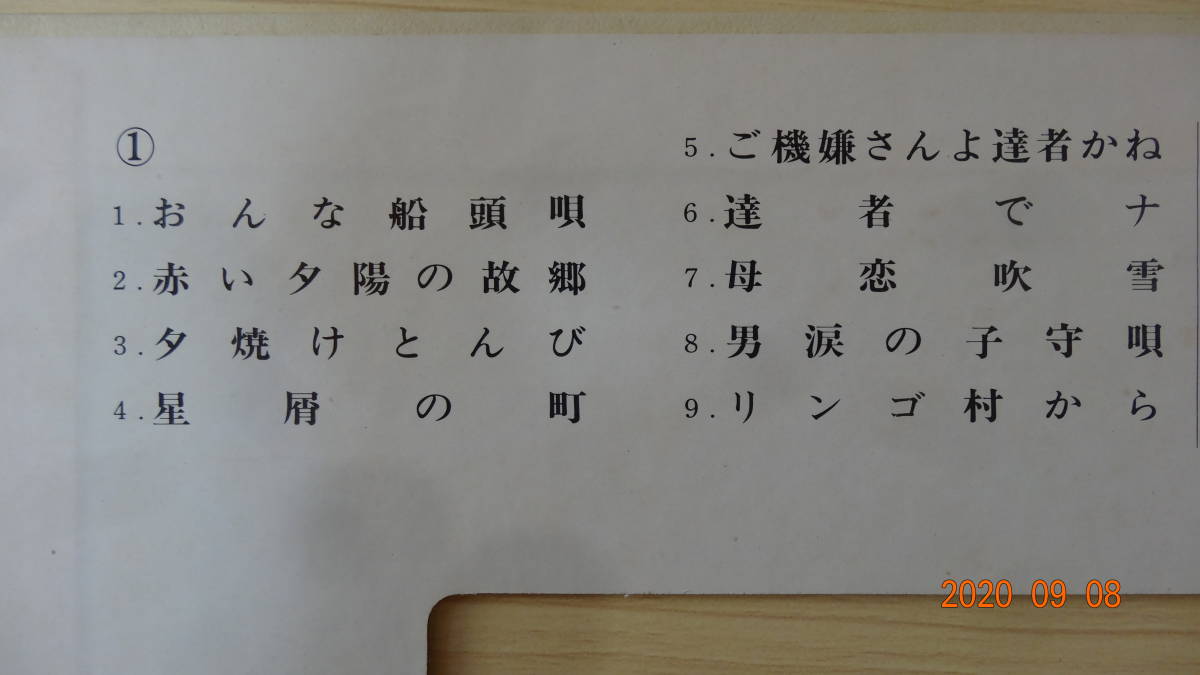 ①
1.おんな船頭唄
2.赤い夕陽の故郷
3.夕焼けとんび
4.星屑の町
5.ご機嫌さんよ達者かね
6.達者でナ
7.母恋吹雪
8.男涙の子守唄
9.リンゴ村から
2020 09 08